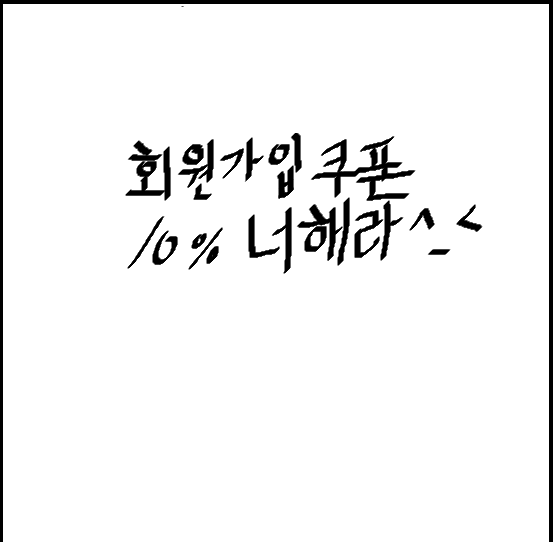 회원가입 쿠폰
10% 너해라^_<